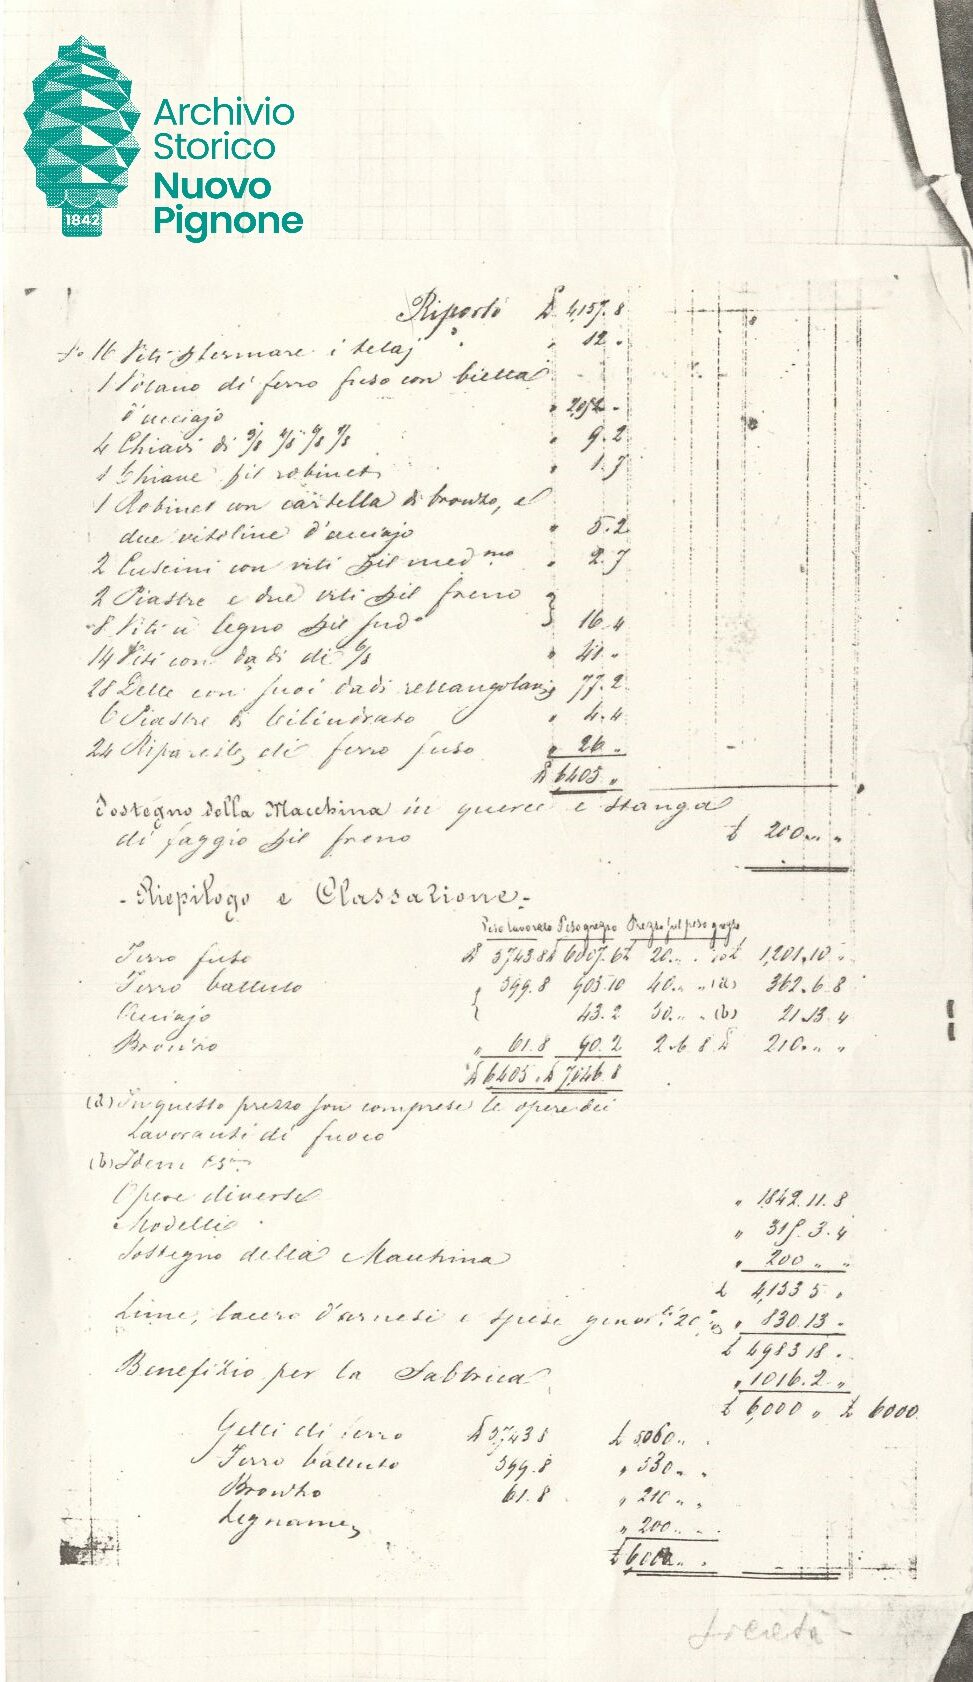 Archivio
Storico
Nuovo
Pignone
1842
Riporto £ 4,157.8
No 16 Viti p fermare i telaj " 12 "
1 Volano di ferro fuso con biella
d'acciajo " 2052 "
4 Chiavi di " 9.2
1 Chiave pil robinet " 1.7
1 Robinet con cartella di bronzo, e
due vitoline d'acciajo " 5.2
2 Cuscini con viti pil med.mo " 2.7
2 Piastre e due viti pil freno
8 Viti a legno pil sud.o } 16.4
14 Viti con dadi di 6/8 " 41 "
28 Dette con suoi dadi rettangolari 77.2
6 Piastre di Cilindrato " 4.4
24 di ferro fuso " 26 "
6405 "
Sostegno della Macchina in querce e stanga
di faggio pil freno £ 200 " "
- Riepilogo e Classazione -
Peso lavorato Peso gregio Prezzo pil peso gregio
Ferro fuso 5743.8 6007.6 20 " " 1,201.10 "
Ferro battuto 599.8 905.10 40 " " (a) 362.6.8
Acciajo 43.2 50 " " (b) 21.13.4
Bronzo " 61.8 90.2 2.6.8 210 " "
6405 " 7046.8
(a) In questo prezzo son comprese le opere dei
Lavoranti di fuoco
(b) Idem
Opere diverse " 1842.11.8
Modelli " 315.3.4
Sostegno della Macchina " 200 " "
£ 4,153 5 "
Lime, lacero d'arnesi e spese gener.li 20 " 830.13 "
£ 4983 18 "
Benefizio per la Fabbrica " 1016.2 "
£ 6,000 " £ 6000
Getti di ferro 5,743 8 £ 5,060 " "
Ferro battuto 599.8 " 530 " "
Bronzo 61.8 " 210 " "
Legname " 200 " "
£ 6,000 " "